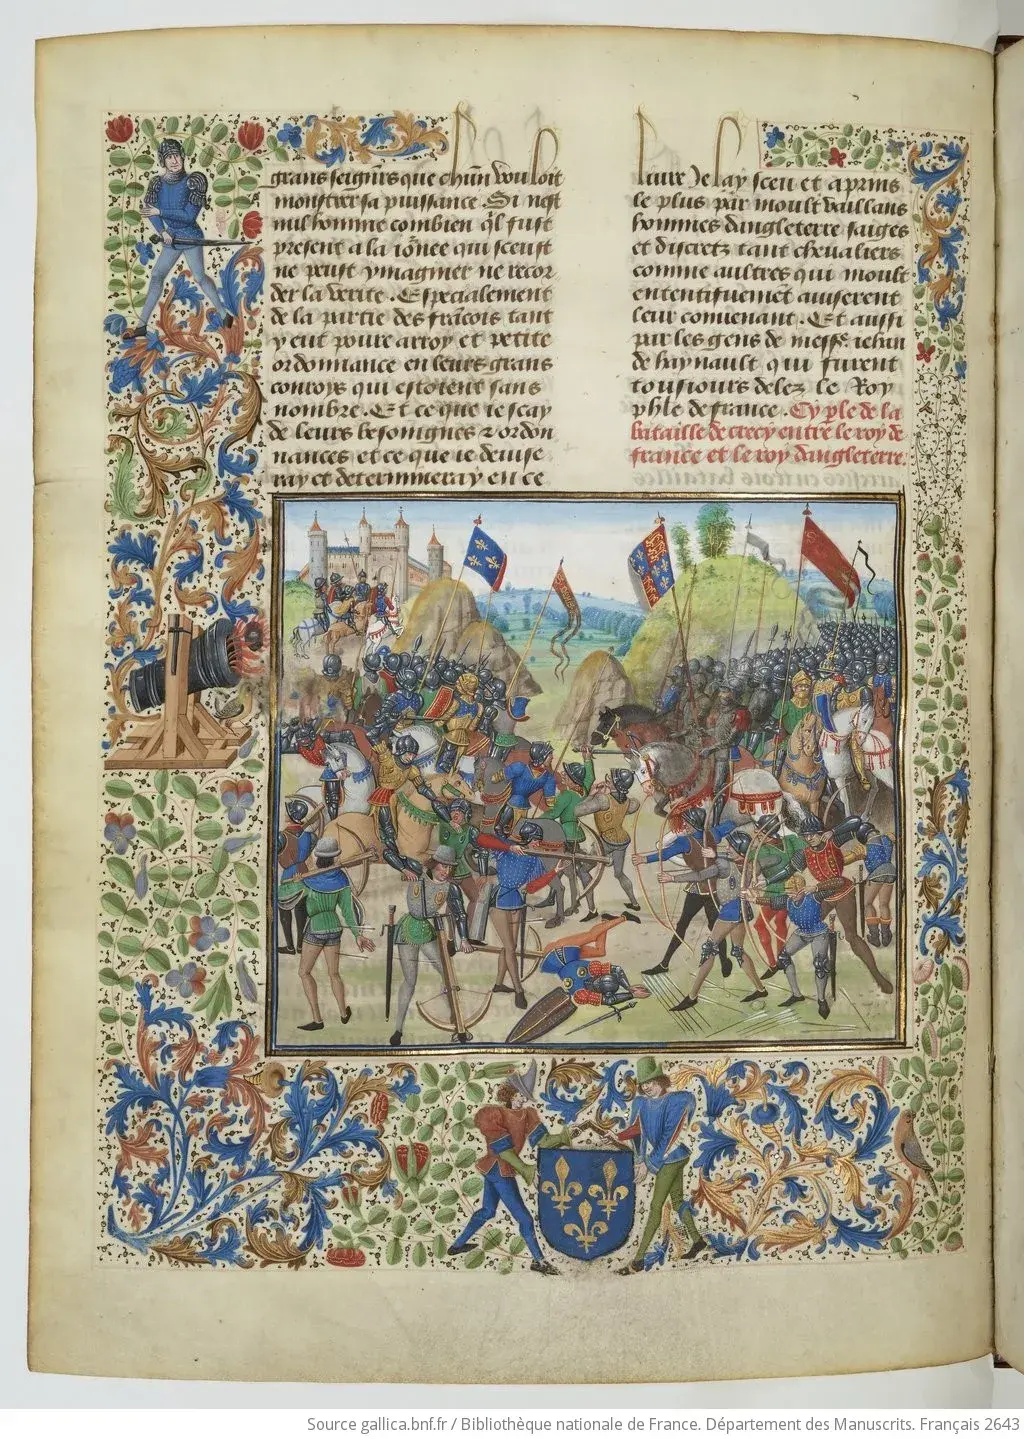 grans seigneurs que chūn vouloit
monstrer sa puissance. Si nest
nul homme combien q̄l fust
present a la iōnee qui sceust
ne peust ymaginer ne recor
der la verite. Especialement
de la partie des frācois tant
y eut poure arroy et petite
ordonnance en leurs grans
conroys qui estoient sans
nombre. Et ce que ie scay
de leurs besoignes ⁊ ordon
nances et ce que ie deuise
ray et determineray en ce
liure Je lay sceu et aprins
le plus par moult vaillans
hommes dangleterre saiges
et discretz tant cheualiers
comme aultres qui moult
ententifuemēt auiserent
leur conuenant. Et aussi
par les gens de messē iehan
de haynault qui furent
tousiours delez le Roy
phl̄e de france. Cy ple de la
bataille de crecy entre le roy de
france et le roy dangleterre.
Source gallica.bnf.fr / Bibliothèque nationale de France. Département des Manuscrits. Français 2643